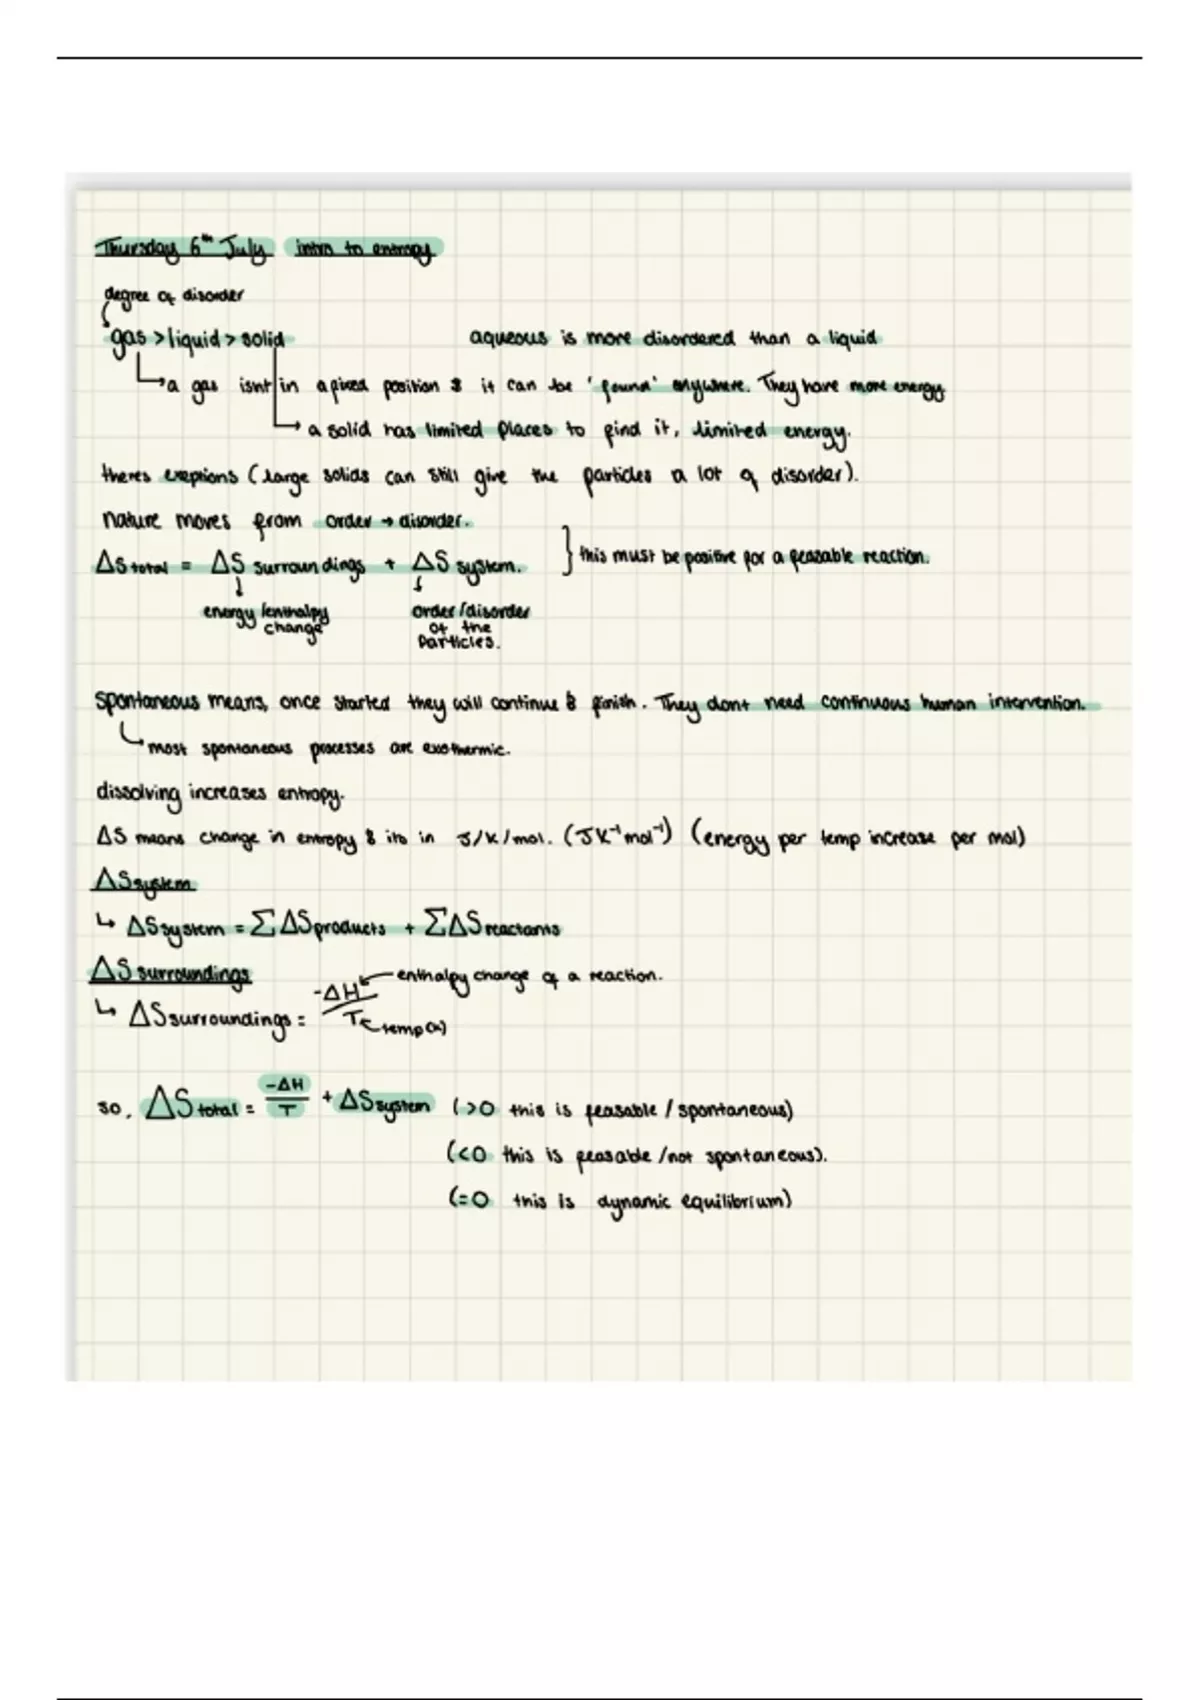 Thursday 6th July intro to entropy
degree of disorder
gas > liquid > solid aqueous is more disordered than a liquid
→ a gas isnt in a fixed position & it can be 'found' anywhere. They have more energy
→ a solid has limited places to find it, limited energy.
theres exeptions (large solids can still give the particles a lot of disorder).
nature moves from order → disorder.
ΔS total = ΔS surroundings + ΔS system. } this must be positive for a feasable reaction.
energy/enthalpy change order/disorder of the particles.
spontaneous means, once started they will continue & finish. They dont need continuous human intervention.
↳ most spontaneous processes are exothermic.
dissolving increases entropy.
ΔS means change in entropy & its in J/K/mol. (JK⁻¹mol⁻¹) (energy per temp increase per mol)
ΔS system
↳ ΔS system = ΣΔS products + ΣΔS reactants
ΔS surroundings
↳ ΔS surroundings = -ΔH / T ← enthalpy change of a reaction. ← temp (K)
so, ΔS total = -ΔH / T + ΔS system (>0 this is feasable / spontaneous)
(<0 this is feasable / not spontaneous).
(=0 this is dynamic equilibrium)